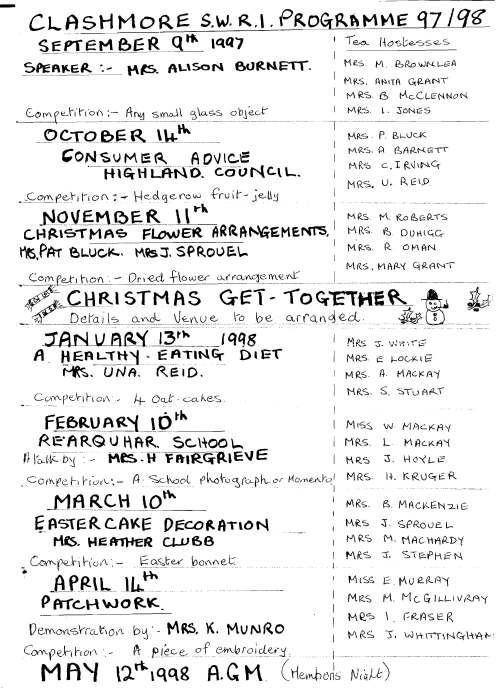 CLASHMORE S.W.R.I. PROGRAMME 97/98
SEPTEMBER 9th 1997
SPEAKER :- MRS. ALISON BURNETT.
Competition :- Any small glass object
Tea Hostesses
MRS M. BROWNLEA
MRS. ANITA GRANT
MRS. B McCLENNON
MRS. I. JONES
OCTOBER 14th
CONSUMER ADVICE
HIGHLAND COUNCIL.
Competition :- Hedgerow fruit-jelly
MRS P. BLUCK
MRS. A BARNETT
MRS C. IRVING
MRS. U. REID
NOVEMBER 11th
CHRISTMAS FLOWER ARRANGEMENTS,
MRS, PAT BLUCK. MRS J. SPROUEL
Competition :- Dried flower arrangement
MRS M. ROBERTS
MRS. B DUHIGG
MRS. R OMAN
MRS, MARY GRANT
CHRISTMAS GET-TOGETHER
Details and Venue to be arranged.
JANUARY 13th 1998
A HEALTHY-EATING DIET
MRS. UNA. REID.
Competition - 4 Oat-cakes.
MRS J. WHITE
MRS E LOCKIE
MRS. A. MACKAY
MRS. S. STUART
FEBRUARY 10th
REARQUHAR SCHOOL
A talk by :- MRS. H FAIRGRIEVE
Competition :- A School photograph or Momento
MISS W MACKAY
MRS. L. MACKAY
MRS J. HOYLE
MRS. H. KRUGER
MARCH 10th
EASTER CAKE DECORATION
MRS. HEATHER CLUBB
Competition :- Easter bonnet
MRS. B. MACKENZIE
MRS J. SPROUEL
MRS M. MACHARDY
MRS J. STEPHEN
APRIL 14th
PATCHWORK.
Demonstration by - MRS. K. MUNRO
Competition :- A piece of embroidery.
MISS E. MURRAY
MRS M. McGILLIVRAY
MRS I. FRASER
MRS J. WHITTINGHAM
MAY 12th 1998 A.G.M. (Members Night)